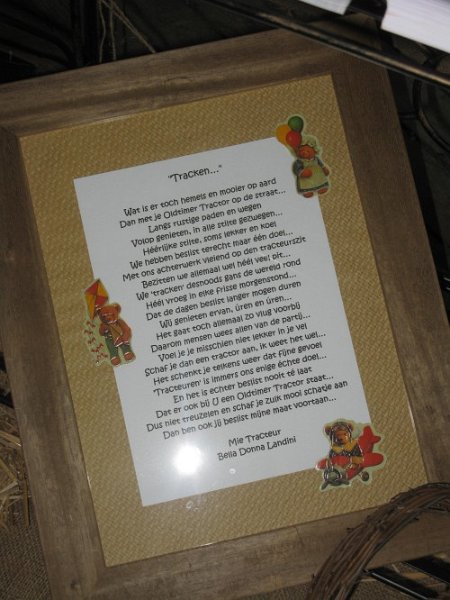 "Tracken..."
Wat is er toch hemels en mooier op aard
Dan met je Oldtimer Tractor op de straat...
Langs rustige paden en wegen
Volop genieten, in alle stilte gezwegen...
Héérlijke stilte, soms lekker en koel
We hebben beslist terecht maar één doel...
Met ons achterwerk vleiend op den tracteurszit
Bezitten we allemaal wel héél veel pit...
We 'tracken' desnoods gans de wereld rond
Héél vroeg in elke frisse morgenstond...
Dat de dagen beslist langer mogen duren
Wij genieten ervan, úren en úren...
Het gaat toch allemaal zo vlug voorbij
Daarom mensen wees allen van de partij...
Voel je je misschien niet lekker in je vel
Schaf je dan een tractor aan, ik weet het wel...
Het schenkt je telkens weer dat fijne gevoel
'Tracteuren' is immers ons enige échte doel...
En het is echter beslist nooit té laat
Dat er ook bij U een Oldtimer Tractor staat...
Dus niet treuzelen en schaf je zulk mooi schatje aan
Dan ben ook jij beslist mijne maat voortaan...
Mie Tracteur
Bella Donna Landini